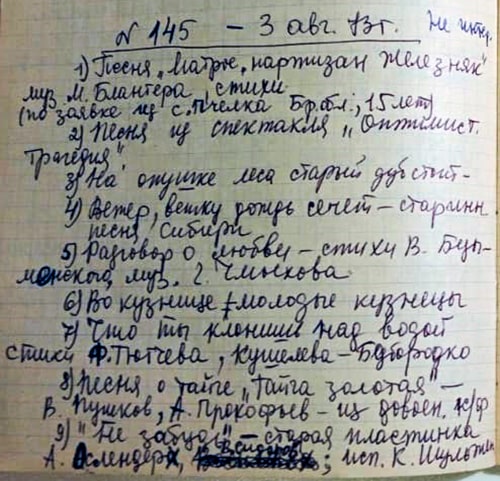 № 145 – 3 авг. 83г. Не интер.
1) Песня „Матрос, партизан Железняк"
муз. М. Блантера, стихи
(по заявке из с. Пчелка Бр. обл; 15 лет)
2) Песня из спектакля „Оптимист.
трагедия".
3) На опушке леса старый дуб стоит –
4) Ветер, ветку дождь сечет – старинн.
песня Сибири
5) Разговор о любви – стихи В.
муз. Г.
6) Во кузнице – молодые кузнецы
7) Что ты клонишь над водой
стихи Ф. Тютчева, Кушелева – Безбородко
8) Песня о тайге „Тайга золотая" –
В. Пушков, А. Прокофьев – из довоен. к/ф
9) "Не забудь" – старая пластинка
А. ; исп. К. Шульжен